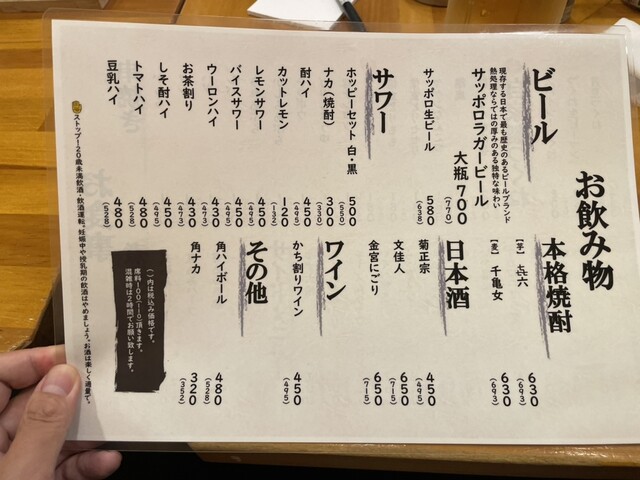 お飲み物
ビール
現存する日本で最も歴史のあるビールブランド
熱処理ならではの厚みのある独特な味わい
サッポロラガービール
大瓶 700
(770)
サッポロ生ビール 580
(638)
サワー
ホッピーセット 白・黒 500
(550)
ナカ(焼酎) 300
(330)
酎ハイ 450
(495)
カットレモン 120
(132)
レモンサワー 450
(495)
バイスサワー 450
(495)
ウーロンハイ 430
(473)
お茶割り 430
(473)
しそ酎ハイ 450
(495)
トマトハイ 480
(528)
豆乳ハイ 480
(528)
本格焼酎
【芋】 㐂六 630
(693)
【麦】 千亀女 630
(693)
日本酒
菊正宗 450
(495)
文佳人 650
(715)
金宮にごり 650
(715)
ワイン
かち割りワイン 450
(495)
その他
角ハイボール 480
(528)
角ナカ 320
(352)
( )内は税込み価格です。
席料100(110)頂きます。
混雑時は2時間でお願い致します。
ストップ!20歳未満飲酒・飲酒運転。妊娠中や授乳期の飲酒はやめましょう。お酒は楽しく適量で。